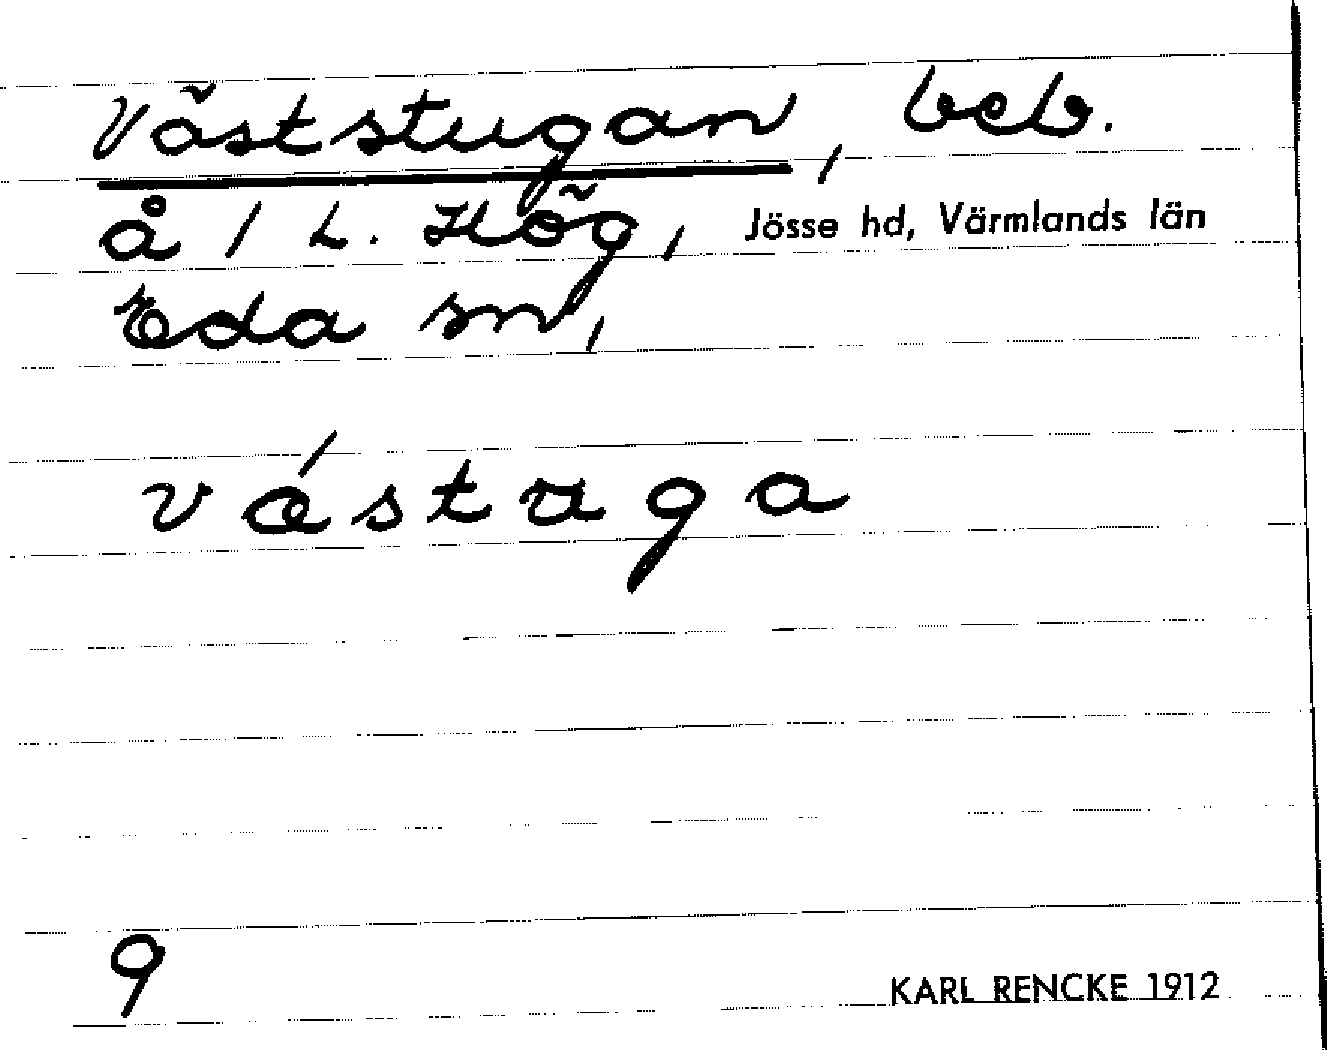 Väststugan, beb.
å 1 L. Hög, Jösse hd, Värmlands län
Eda sn,
vǽstuga
9
KARL RENCKE 1912